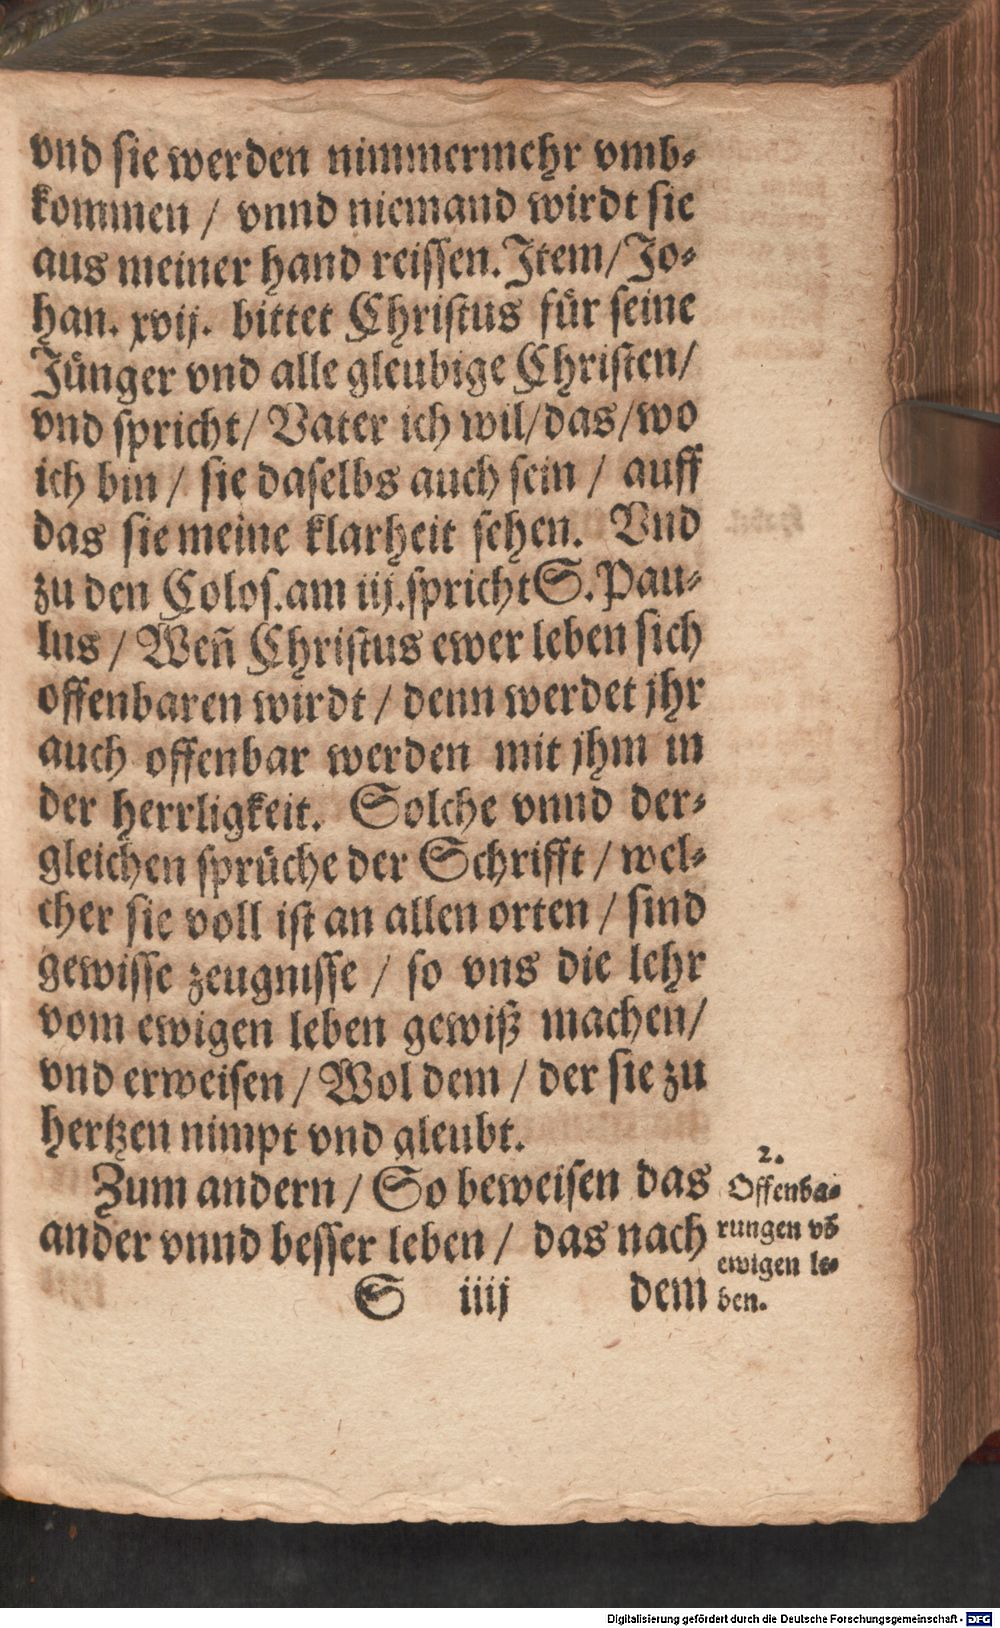 vnd sie werden nimmermehr vmb-
kommen / vnnd niemand wirdt sie
aus meiner hand reissen. Item/ Jo-
han. xvij. bittet Christus für seine
Jünger vnd alle gleubige Christen/
vnd spricht/ Vater ich wil/ das/ wo
ich bin / sie daselbs auch sein / auff
das sie meine klarheit sehen. Vnd
zu den Colos. am iij. spricht S. Pau-
lus / Weñ Christus ewer leben sich
offenbaren wirdt / denn werdet jhr
auch offenbar werden mit jhm in
der herrligkeit. Solche vnnd der-
gleichen sprüche der Schrifft / wel-
cher sie voll ist an allen orten / sind
gewisse zeugnisse / so vns die lehr
vom ewigen leben gewiß machen/
vnd erweisen / Wol dem / der sie zu
hertzen nimpt vnd gleubt.
Zum andern / So beweisen das
ander vnnd besser leben / das nach
S iiij dem
2.
Offenba-
rungen võ
ewigen le-
ben.
Digitalisierung gefördert durch die Deutsche Forschungsgemeinschaft - DFG